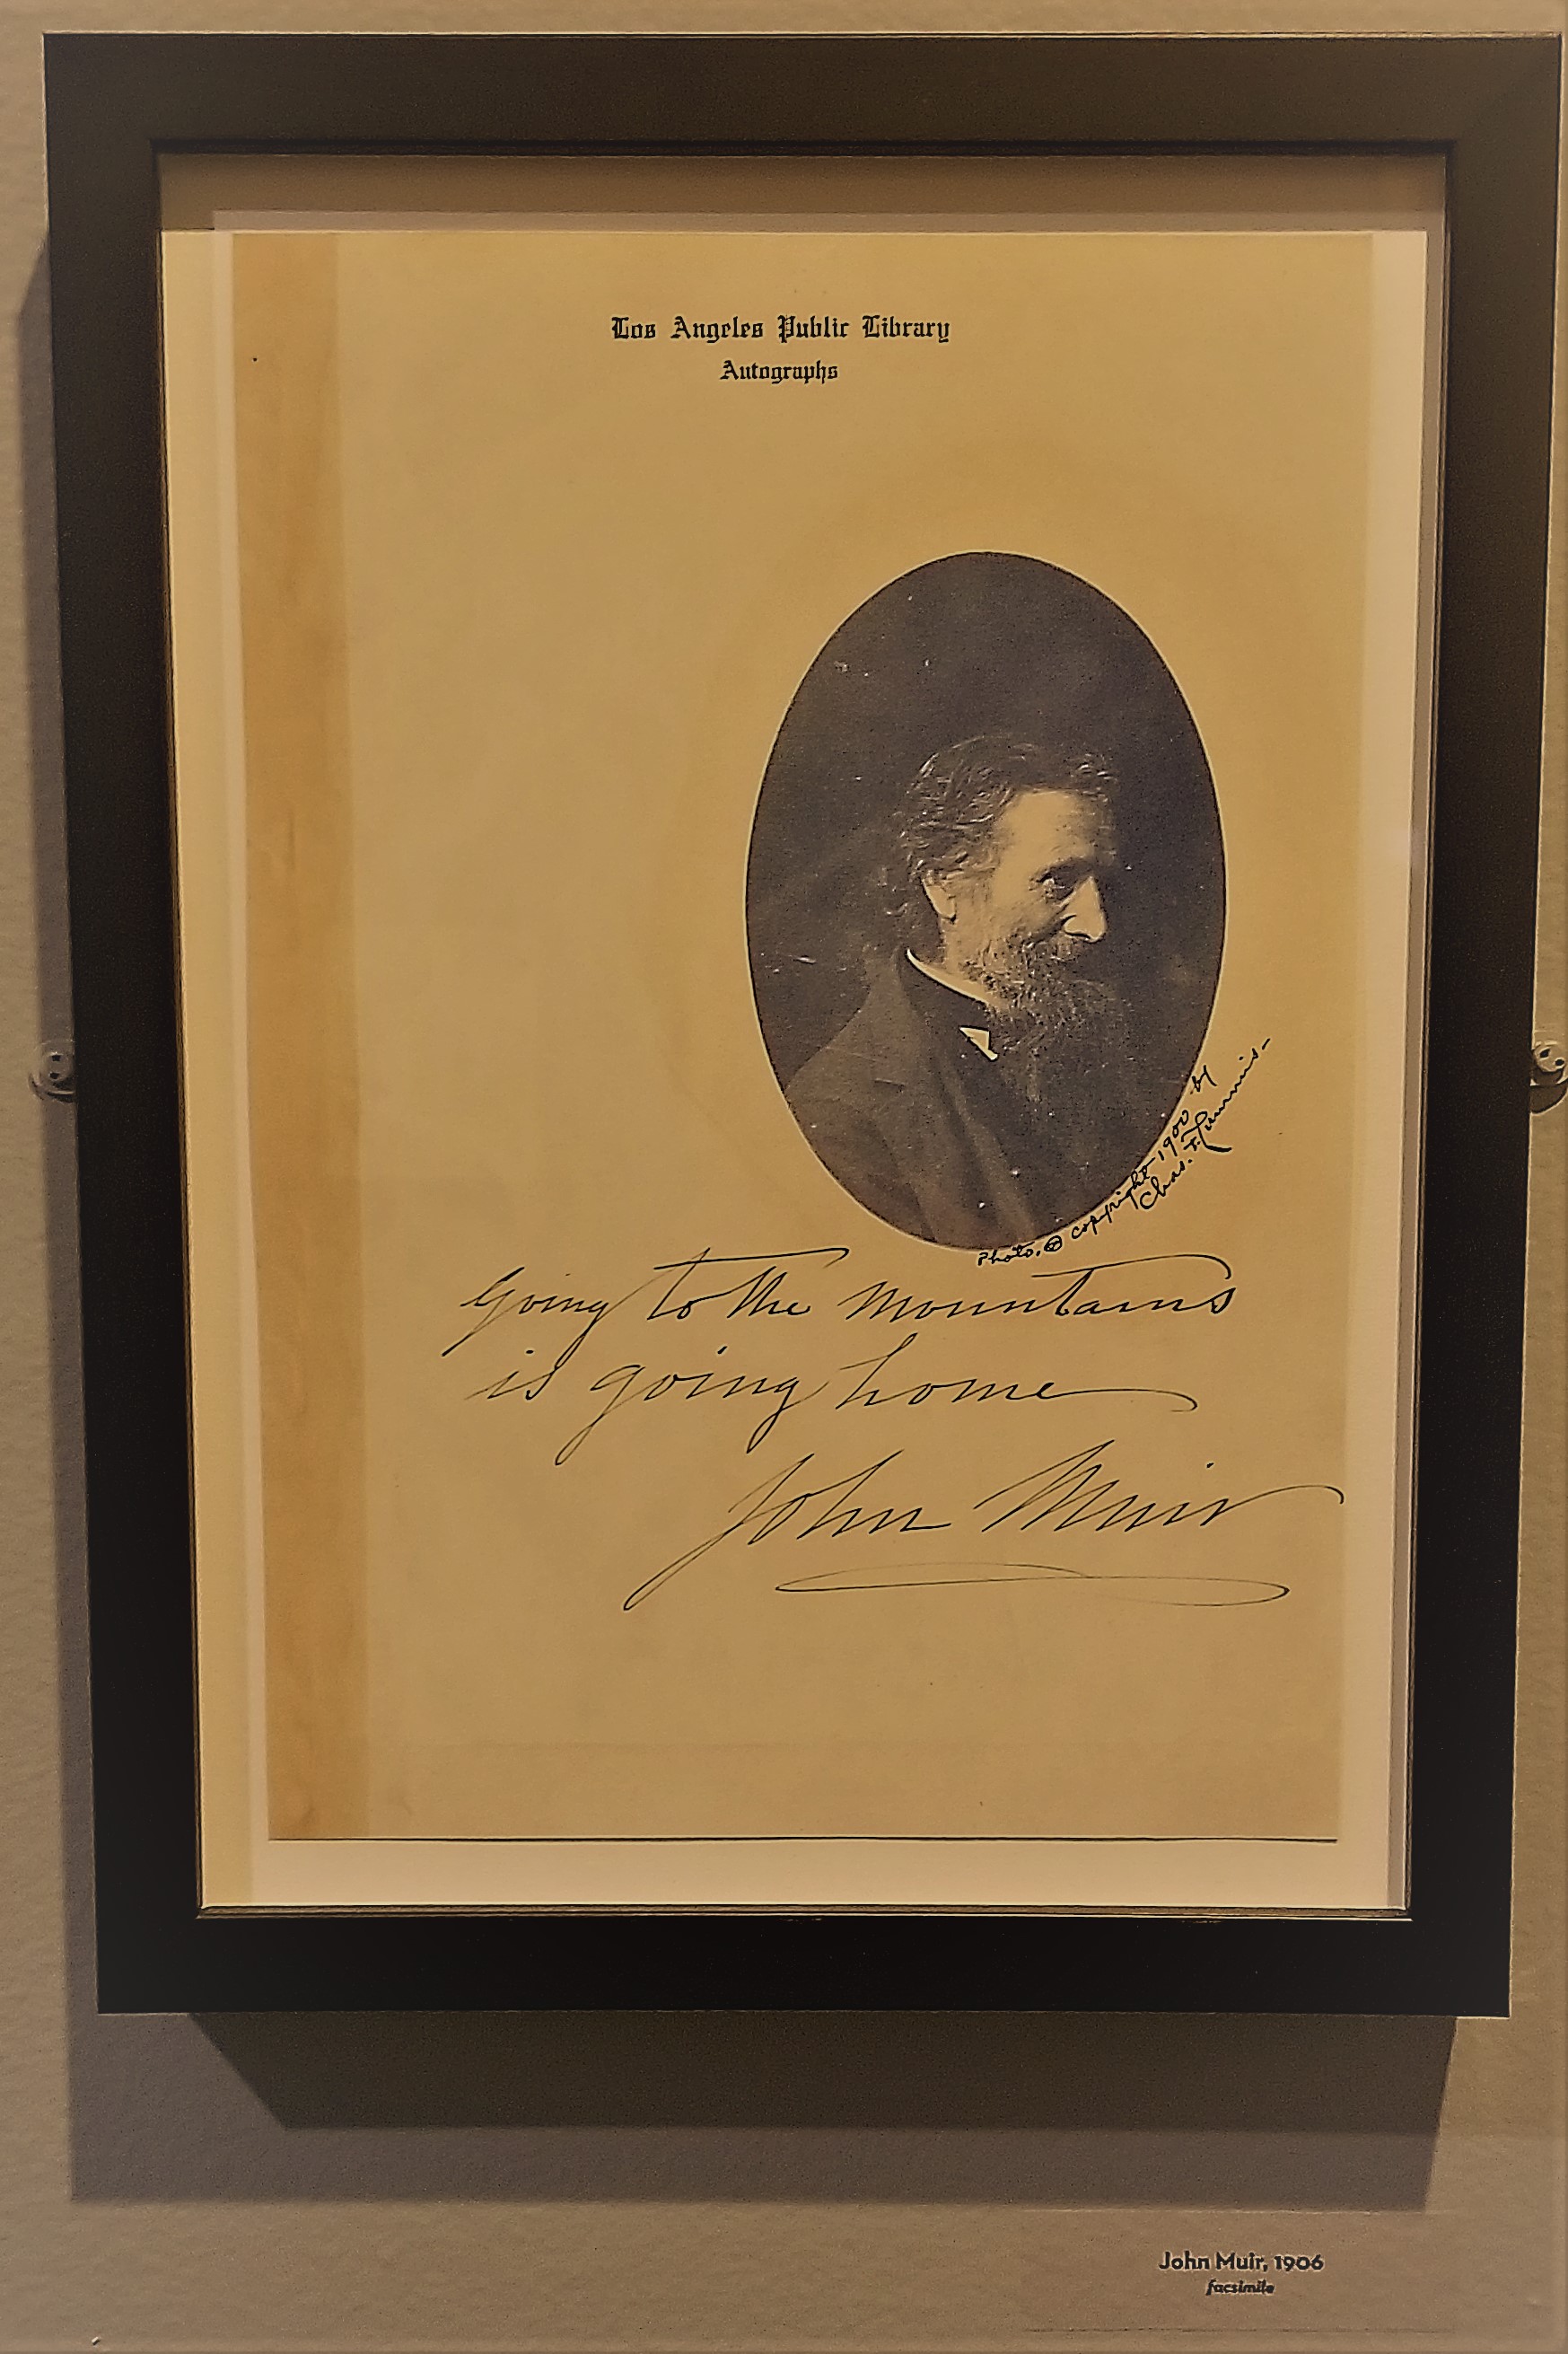 Los Angeles Public Library
Autographs
Photo. © copyright 1900 by
Chas. F. Lummis-
Going to the mountains
is going home
John Muir
John Muir, 1906
facsimile